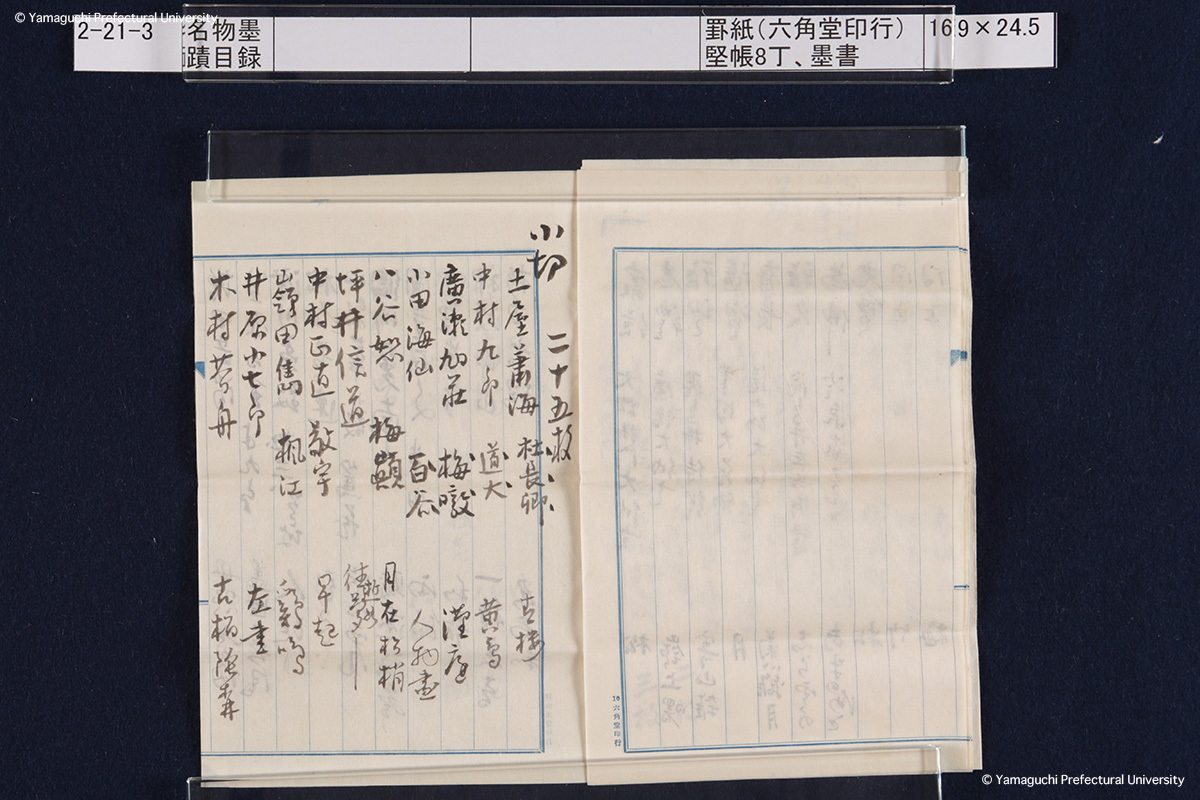 © Yamaguchi Prefectural University
2-21-3
名物墨
蹟目録
罫紙(六角堂印行)
竪帳8丁、墨書
16.9×24.5
小切 二十五枚
土屋蕭海 杜長卿
中村九郎 道大 黄鳥
廣瀬旭荘 梅墩
小田海仙 百谷 人物画
八谷 梅顛 月在松梢
坪井信道
中村正直 敬宇 早起
嶺田雋 楓江 鶏鳴
井原小七郎 左書
木村芥舟 古柏陰森
六角堂印行
© Yamaguchi Prefectural University